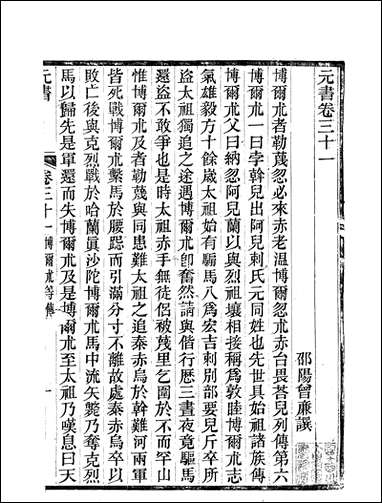 元書卷三十一
邵陽曾廉譔
博爾朮者勒蔑忽必來赤老溫博爾忽朮赤台畏荅兒列傳第六
博爾朮一曰孛斡兒出阿兒剌氏元同姓也先世具始祖諸族傳
博爾朮父曰納忽阿兒蘭以與烈祖壤相接稱爲敦睦博爾朮志
氣雄毅方十餘歲太祖始有騸馬八爲宏吉剌別部要兒斤卒所
盜太祖獨追之途遇博爾朮卽奮然請與偕行歷三晝夜竟驅馬
還盜不敢爭也是時太祖赤手無徒侶被蔑里乞匍于不而罕山
惟博爾朮及者勒蔑與同患難太祖之追秦赤烏於斡難河兩軍
皆死戰博爾朮繫馬於腰踞而引滿分寸不離故處秦赤烏卒以
敗亡後與克烈戰於哈蘭眞沙陀博爾朮馬中流矢斃乃奪克烈
馬以歸先是軍還而失博爾朮及是博爾朮至太祖乃嘆息曰天
元書
卷三十一 博爾朮等傳
一